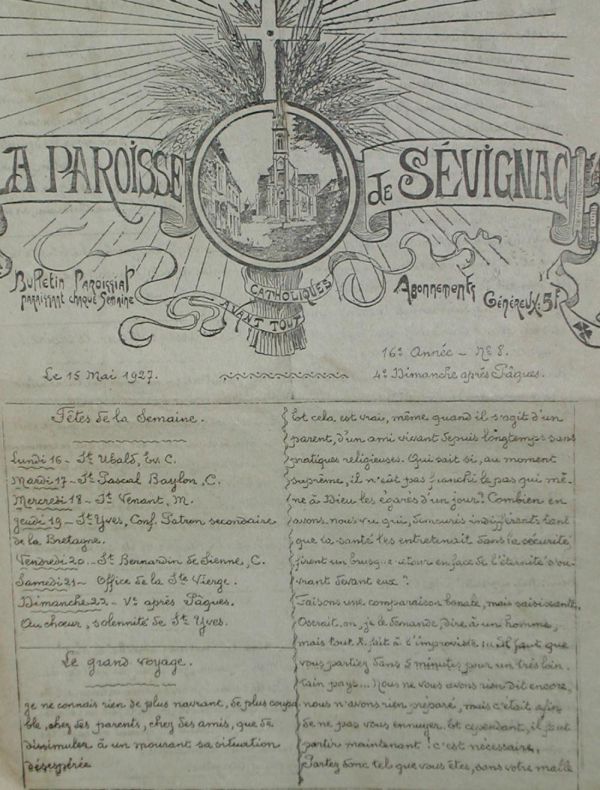 LA PAROISSE
de SÉVIGNAC
CATHOLIQUES
AVANT TOUT
Bulletin Paroissial
paraissant chaque Semaine
Abonnements
Généreux: 5f
16e Année - No 8.
Le 15 Mai 1927.
4e Dimanche après Pâques.
Fêtes de la Semaine.
Lundi 16 - St Ubald, Ev. C.
Mardi 17 - St Pascal Baylon, C.
Mercredi 18 - St Venant, M.
Jeudi 19 - St Yves, Conf. Patron secondaire
de la Bretagne.
Vendredi 20 - St Bernardin de Sienne, C.
Samedi 21 - Office de la Ste Vierge.
Dimanche 22 - Ve après Pâques.
Au chœur, solennité de St Yves.
Le grand voyage.
Je ne connais rien de plus navrant, de plus coupa
ble, chez des parents, chez des amis, que de
dissimuler à un mourant sa situation
désespérée
Et cela est vrai, même quand il s'agit d'un
parent, d'un ami vivant depuis longtemps sans
pratiques religieuses. Qui sait si, au moment
suprême, il n'eût pas franchi le pas qui mè-
ne à Dieu les égarés d'un jour? Combien en
avons-nous vu qui, demeurés indifférents tant
que la santé les entretenait dans la sécurité
firent un brusque retour en face de l'éternité s'ou-
vrant devant eux?
Faisons une comparaison banale, mais saisissante.
Oserait-on, je le demande, dire à un homme,
mais tout à fait à l'improviste ... Il faut que
vous partiez dans 5 minutes pour un très loin-
tain pays... Nous ne vous avons rien dit encore,
nous n'avons rien préparé, mais c'était afin
de ne pas vous ennuyer. Et cependant, il faut
partir maintenant! c'est nécessaire,
Partez donc tel que vous êtes, sans votre malle